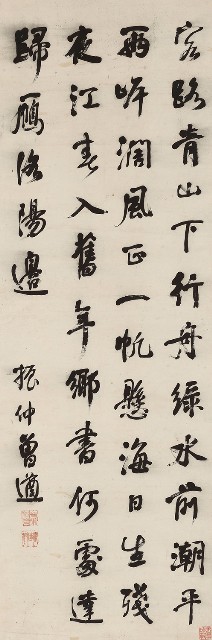 客路青山下行舟綠水前潮平
兩岸濶風正一帆懸海日生殘
夜江春入舊年鄉書何處達
歸雁洛陽邊
振仲曾遒